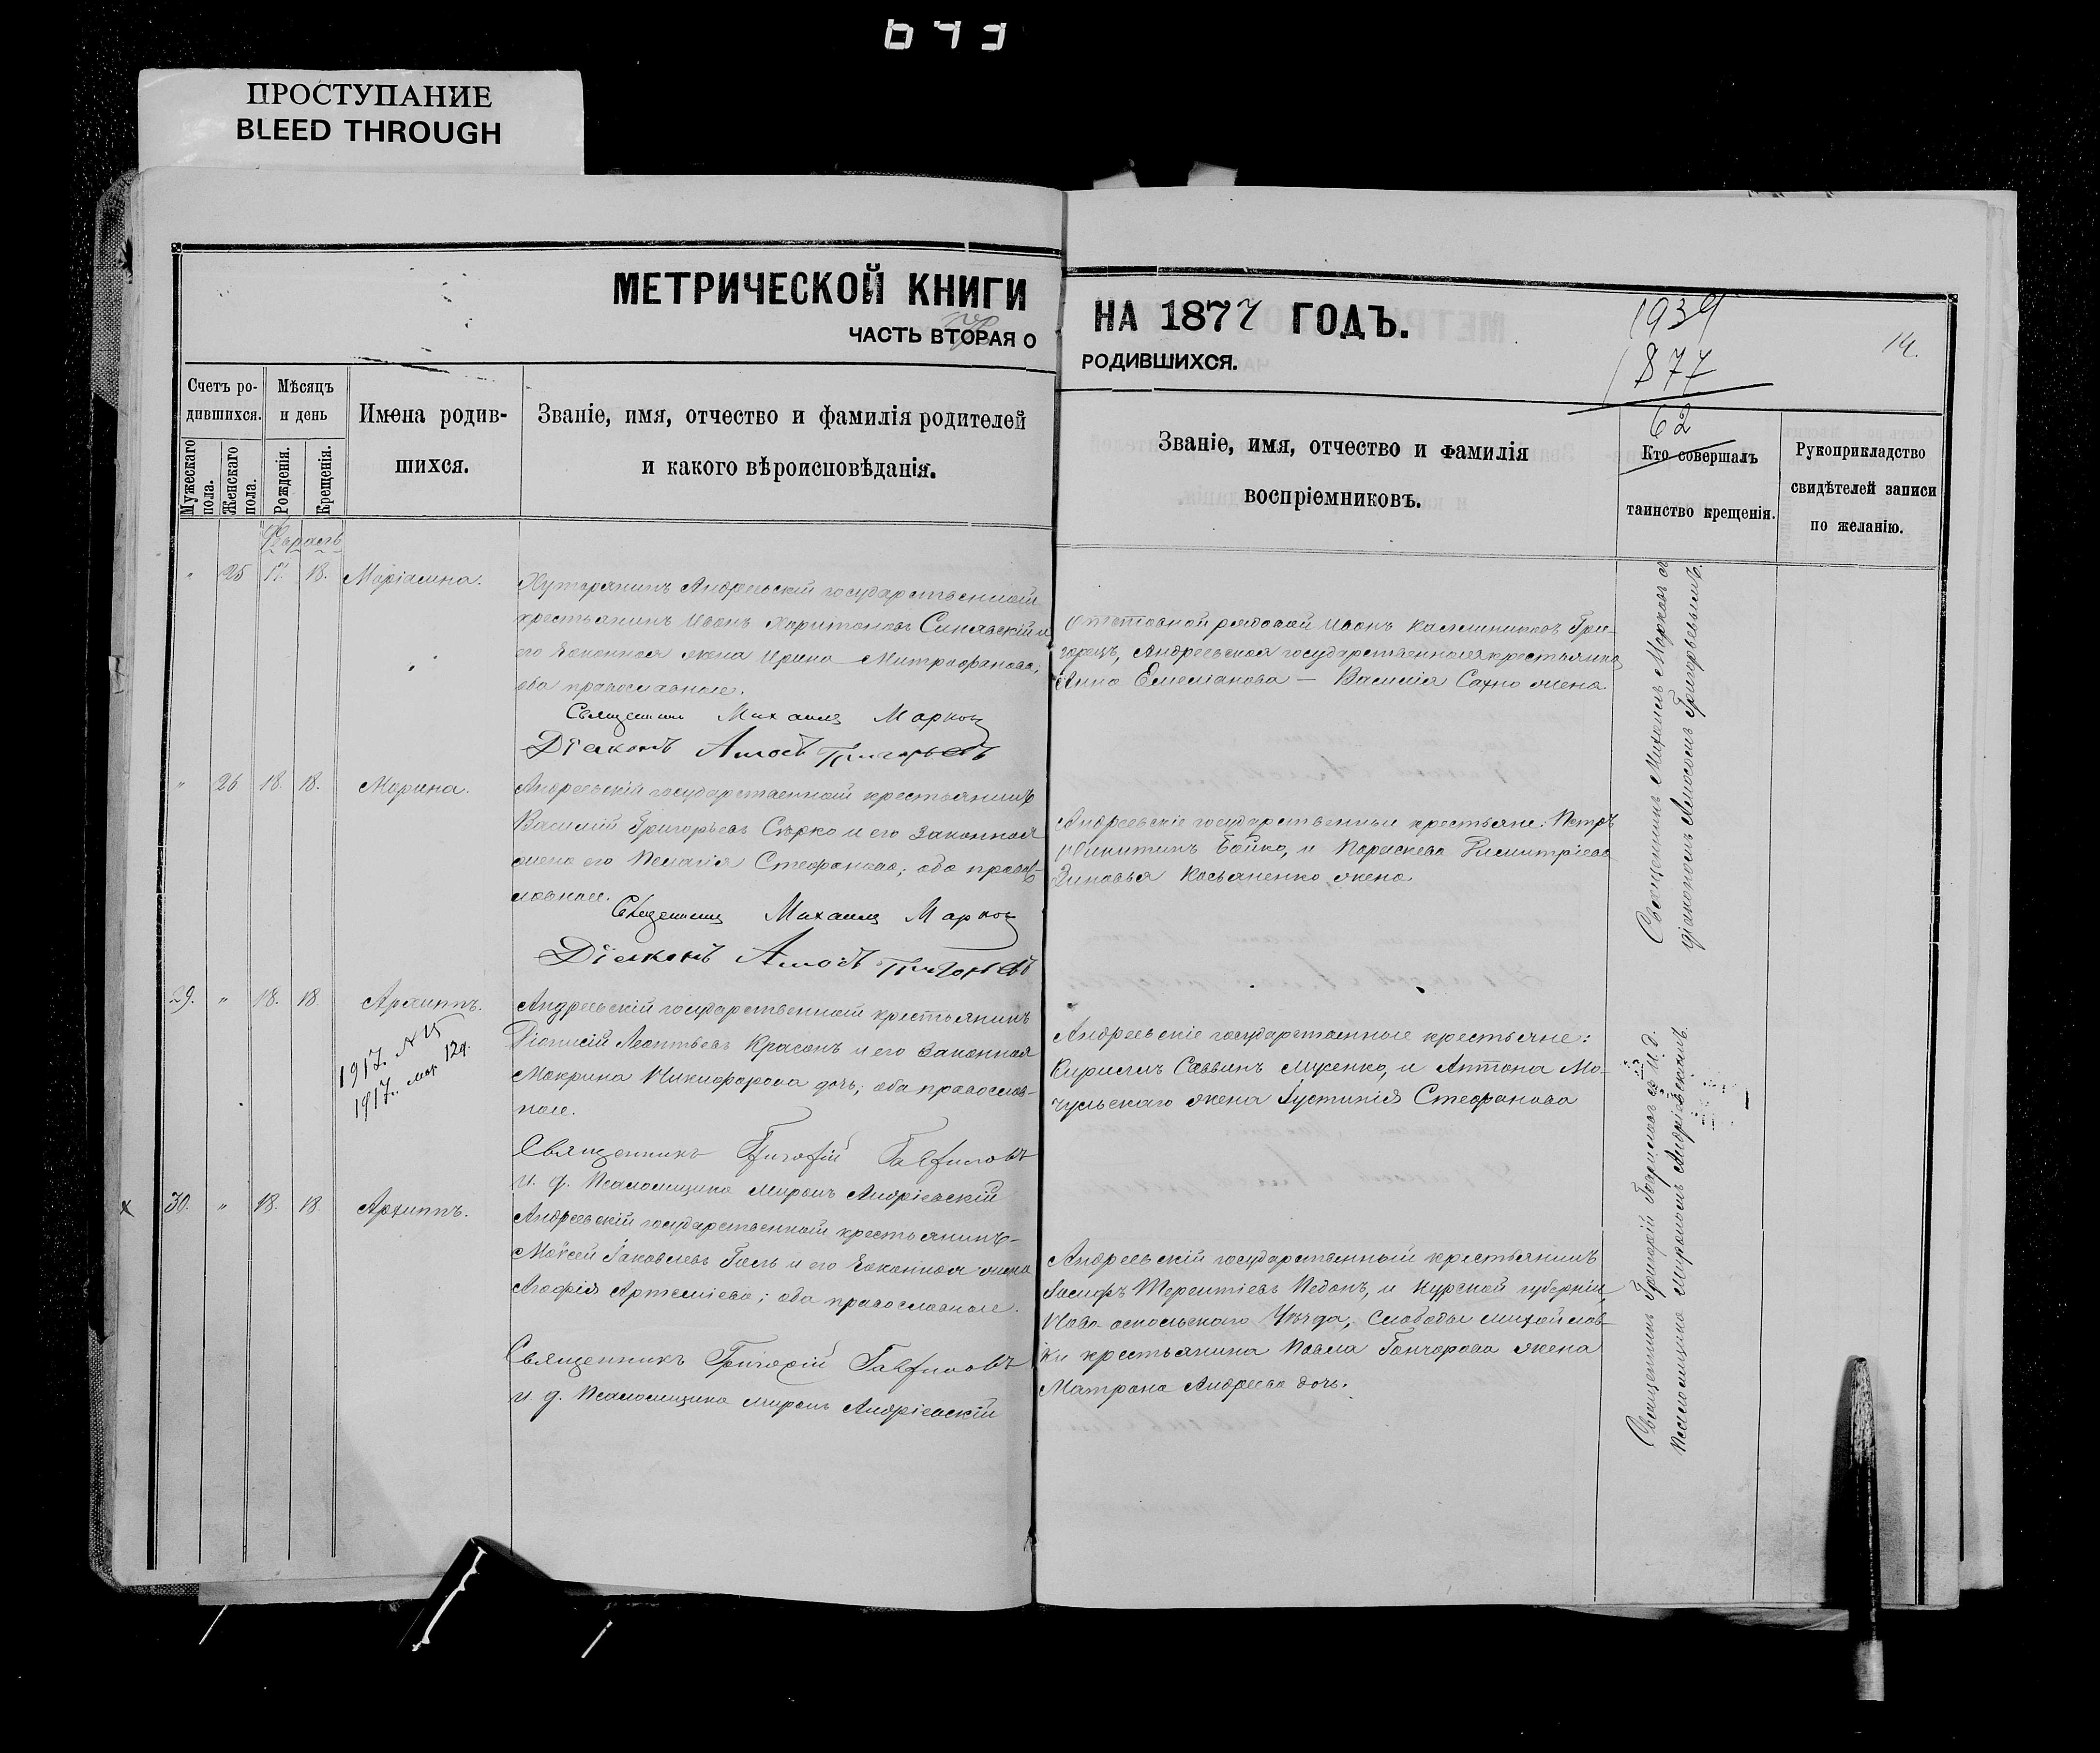 643
ПРОСТУПАНИЕ
BLEED THROUGH
МЕТРИЧЕСКОЙ КНИГИ
ЧАСТЬ ВТОРАЯ О
НА 1877 ГОДЪ.
РОДИВШИХСЯ.
1939
1877
62
14.
Счетъ ро-
дившихся.
Мужескаго пола.
Женскаго пола.
Мѣсяцъ
и день
Рожденія.
Крещенія.
Имена родив-
шихся.
Званіе, имя, отчество и фамилія родителей
и какого вѣроисповѣданія.
Званіе, имя, отчество и фамилія
воспріемниковъ.
Кто совершалъ
таинство крещенія.
Рукоприкладство
свидѣтелей записи
по желанію.
" 25 17. 18. Маріамна.
Хуторянинъ Андреевскій государственный
крестьянинъ Иванъ Харитоновъ Синявскій и
его законная жена Ирина Митрофанова;
оба православные.
Священникъ Михаилъ Марковъ
Діаконъ Амосъ Григорьевъ
Отставной рядовой Иванъ Калинниковъ Гри-
горецъ, Андреевская государственная крестьянка
Анна Емеліанова — Василія Сахно жена.
" 26 18. 18. Марина.
Андреевскій государственный крестьянинъ
Василій Григорьевъ Сѣрко и его законная
жена его Пелагія Стефанова; оба правос-
лавные.
Священникъ Михаилъ Марковъ
Діаконъ Амосъ Григорьевъ
Андреевскіе государственные крестьяне: Петръ
Никитинъ Бойко, и Параскева Димитріева
Зиновья Касьяненко жена
Священникъ Михаилъ Марковъ съ
діакономъ Амосомъ Григорьевымъ.
29. " 18. 18 Архиппъ.
1917. N 15
1917. мар. 12 д.
Андреевскій государственный крестьянинъ
Діонисій Леонтьевъ Красонъ и его законная
Макрина Никифорова дочь; оба православ-
ные.
Священникъ Григорій Гавриловъ
и. д. Псаломщика Миронъ Андріевскій
Андреевскіе государственные крестьяне:
Кириллъ Саввинъ Лисенко, и Антона Мо-
чульскаго жена Іустинія Стефанова
х 30. " 18. 18. Архиппъ.
Андреевскій государственный крестьянинъ
Моѵсей Іаковлевъ Галь и его законная жена
Агафія Артеміева; оба православные.
Священникъ Григорій Гавриловъ
и д. Псаломщика Миронъ Андріевскій
Андреевскій государственный крестьянинъ
Іосифъ Терентіевъ Педанъ, и Курской губерніи,
Ново-оскольскаго Уѣзда, Слободы Михайлов-
ки крестьянина Павла Гончарова жена
Матрона Андреева дочь.
Священникъ Григорій Гавриловъ съ И. д.
Псаломщика Мирономъ Андріевскимъ.